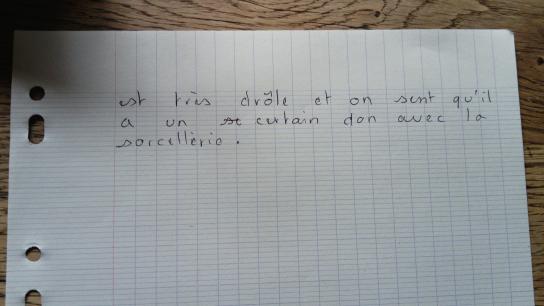 est très drôle et on sent qu'il
a un certain don avec la
sorcellèrie.